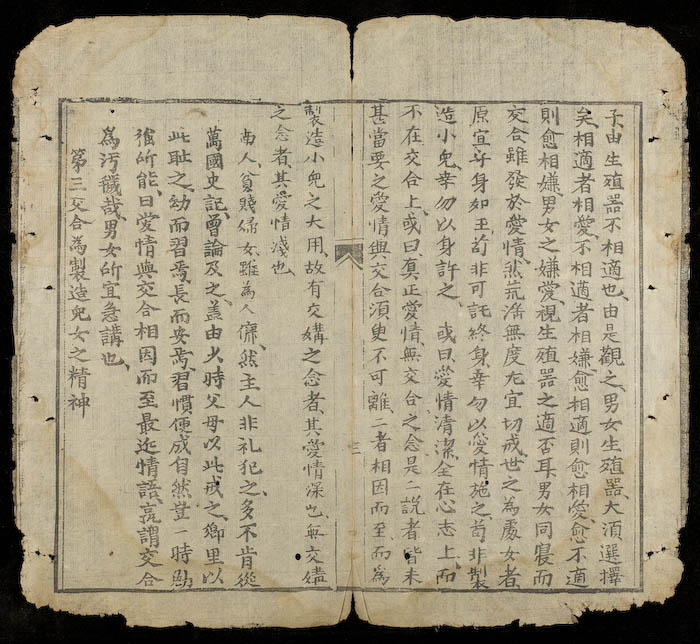 子由生殖器不相適也由是觀之男女生殖器大須選擇
矣相適者相愛不相適者相嫌愈相適則愈相愛愈不適
則愈相嫌男女之嫌愛視生殖器之適否耳男女同寢而
交合雖發於愛情然荒滛無度尤宜切戒世之為處女者
原宜守身如玉苟非可託終身幸勿以愛情施之苟非製
造小兒幸勿以身許之 或曰愛情清潔全在心志上而
不在交合上或曰真正愛情無交合之念是二說者皆未
甚當要之愛情與交合須臾不可離二者相因而至而為
三
製造小兒之大用故有交媾之念者其愛情深也無交媾
之念者其愛情淺也
南人貧賤婦女雖為人傭然主人非礼犯之多不肯從
萬國史記曾論及之蓋由少時父母以此戒之鄉里以
此耻之幼而習焉長而安焉習慣便成自然豈一時勉
強所能曰愛情與交合相因而至最近情語孰謂交合
為污穢哉男女所宜急講也
第三交合為製造兒女之精神